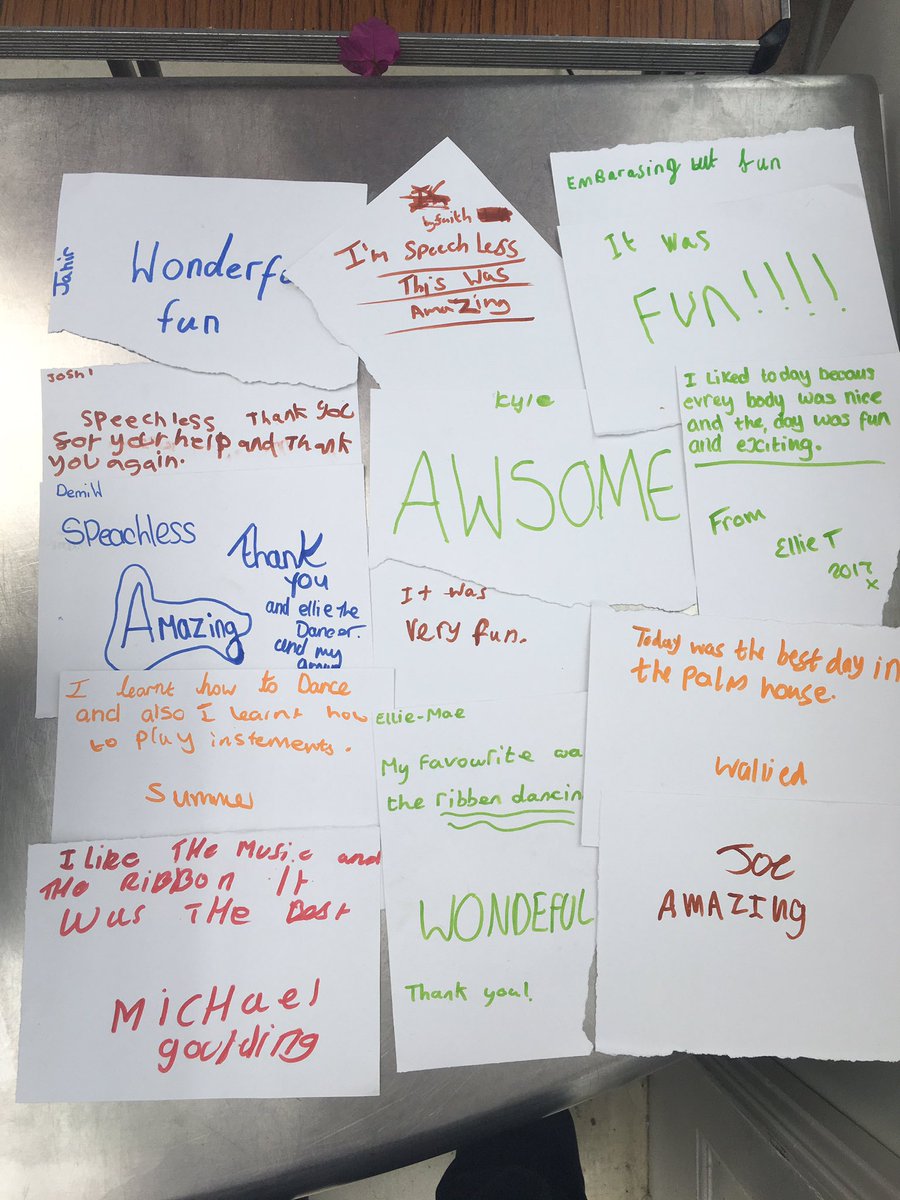 Jahir
Wonderfu
fun
by faith
I'm Speechless
This was
Amazing
EmBarasing but fun
It was
FUN!!!!
Josh
Speechless Thank you
for your help and Thank
you again.
Kyle
AWSOME
I liked today becaus
evrey body was nice
and the, day was fun
and exciting.
From
Ellie T
2017
x
Demi W
Speachless
Amazing
Thank
you
and ellie the
Dancer.
and my
It was
very fun.
Today was the best day in
the palm house.
Walied
I learnt how to Dance
and also I learnt how
to play instements.
Summer
Ellie-Mae
My Favourite wa
the ribben dancin
WONDEFUL
Thank you!
Joe
AMAZING
I like THe Music and
THe RiBBon It
was THe Best
MicHael
goulding